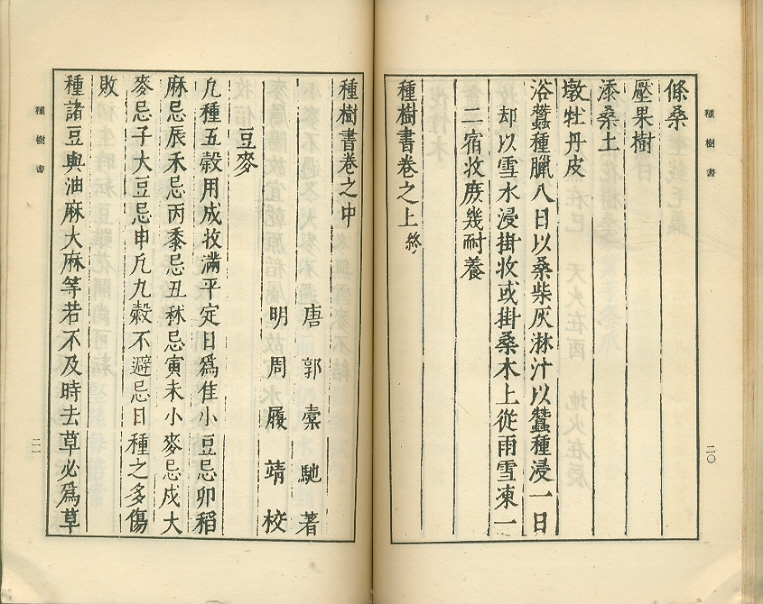 種樹書
二〇
條桑
壓果樹
添桑土
墩牡丹皮
浴蠶種臘八日以桑柴灰淋汁以蠶種浸一日
却以雪水浸掛收或掛桑木上從雨雪凍一
二宿收庻幾耐養
種樹書卷之上終
種樹書卷之中
唐郭橐馳著
明周履靖校
豆麥
凢種五穀用成收滿平定日爲佳小豆忌卯稻
麻忌辰禾忌丙黍忌丑秫忌寅未小麥忌戍大
麥忌子大豆忌申凢九穀不避忌日種之多傷
敗
種諸豆與油麻大麻等若不及時去草必爲草
種樹書
二一